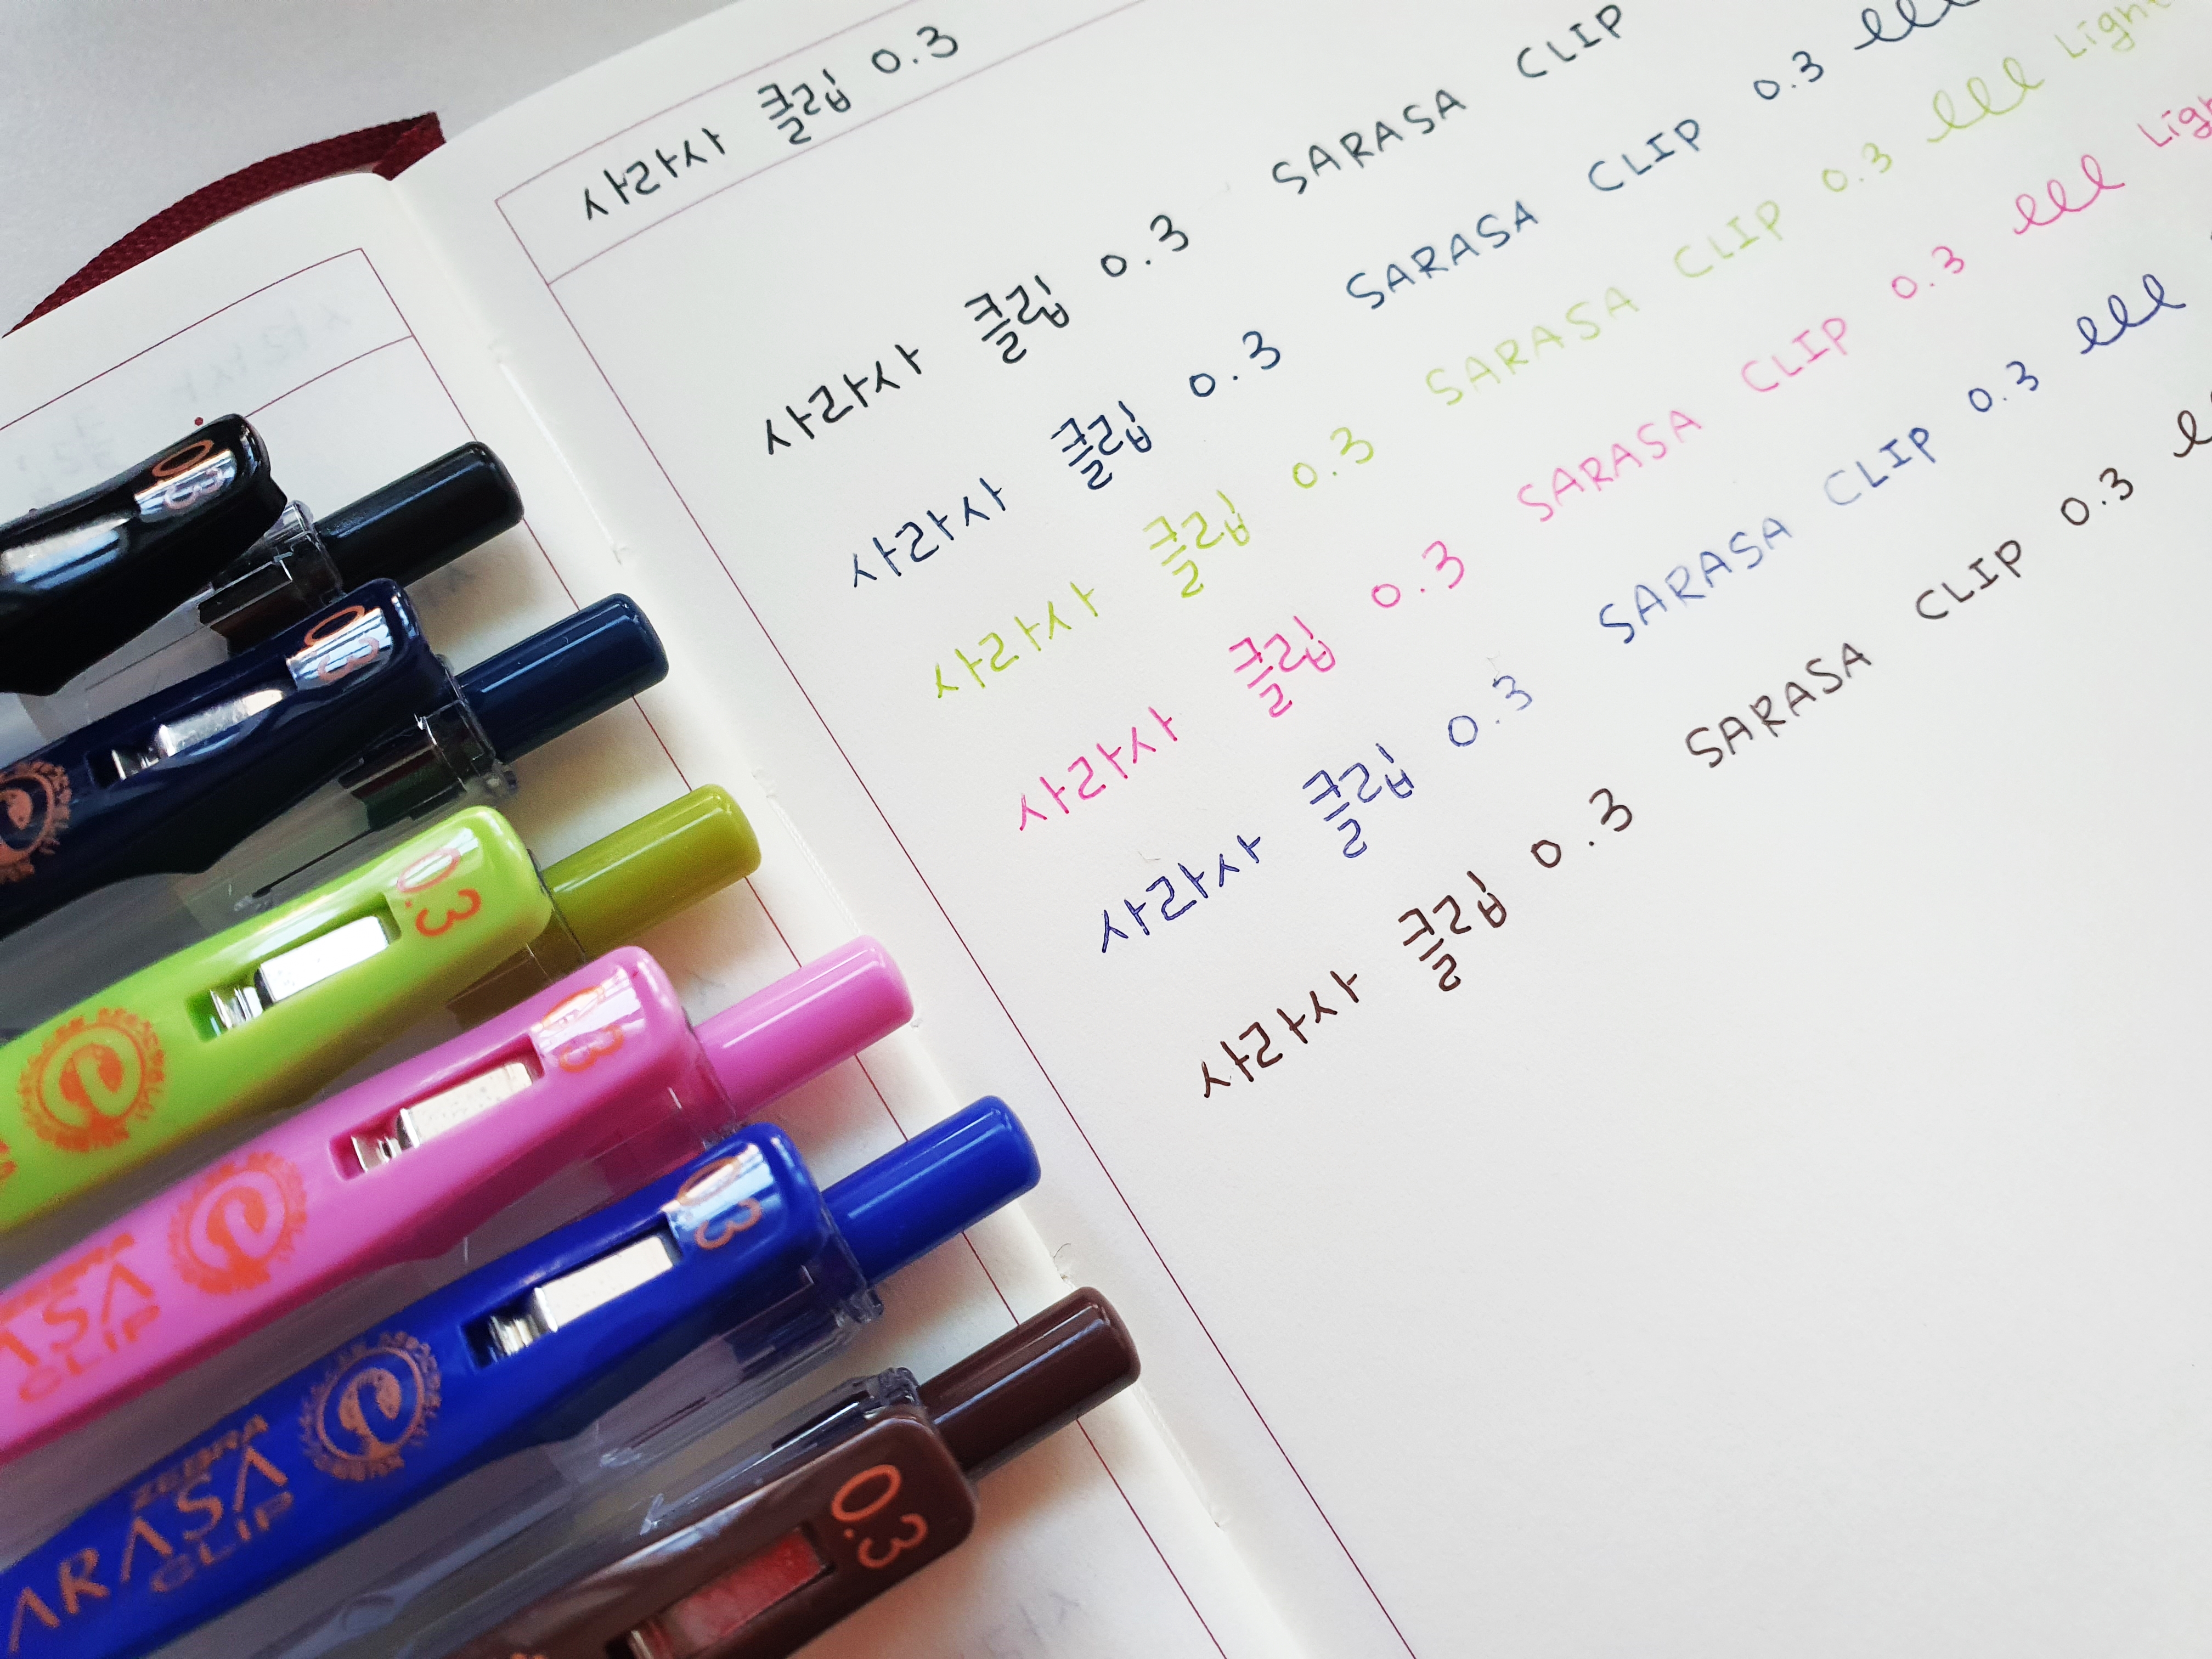 사라사 클립 0.3
사라사 클립 0.3 SARASA CLIP
사라사 클립 0.3 SARASA CLIP 0.3 lll
사라사 클립 0.3 SARASA CLIP 0.3 lll Light
사라사 클립 0.3 SARASA CLIP 0.3 lll
사라사 클립 0.3 SARASA CLIP 0.3 lll
사라사 클립 0.3 SARASA CLIP 0.3
0.3
0.3
0.3
0.3
CLIP
0.3
ZEBRA
ARASA
CLIP
0.3